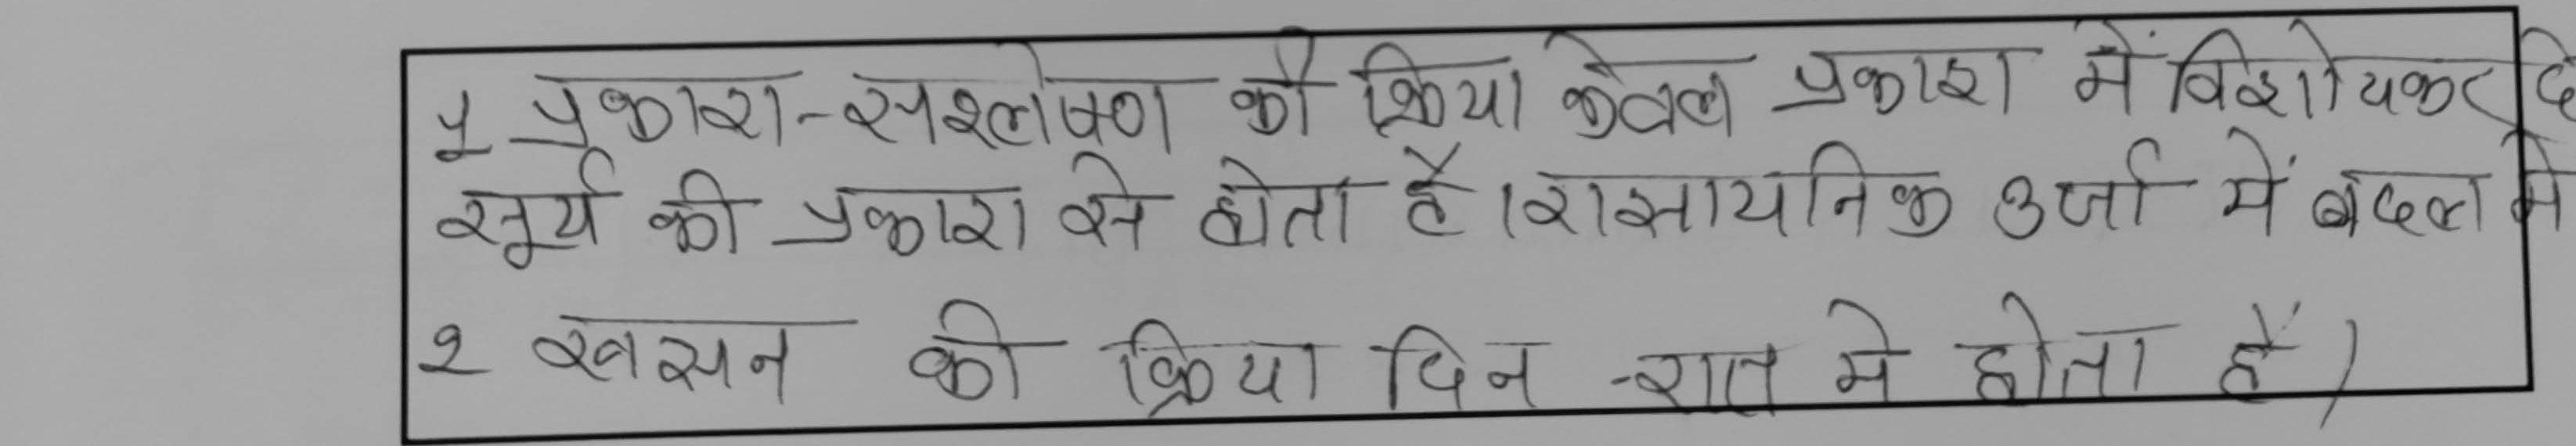 1 प्रकाश-सश्लेषण की क्रिया केवल प्रकाश में विशोयकर दि
सूर्य की प्रकाश से होता है। रासायनिक उर्जा में बदल मे
2 श्वसन की क्रिया दिन -रात मे होता है।